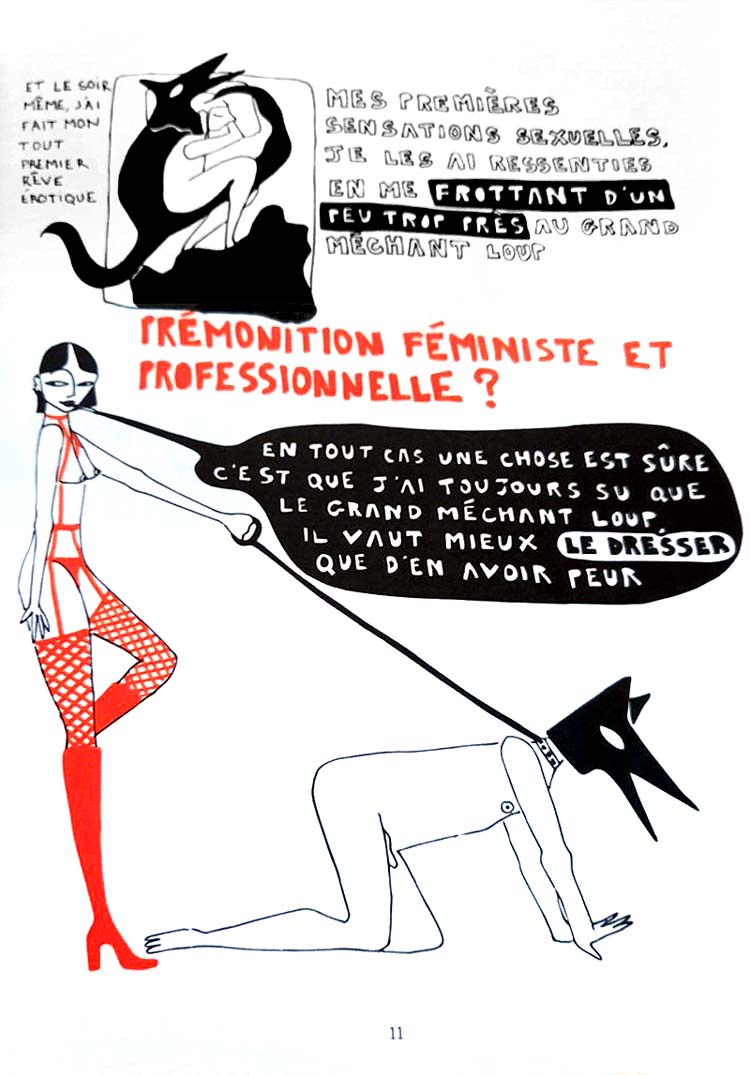 ET LE SOIR
MÊME, J'AI
FAIT MON
TOUT
PREMIER
RÊVE
ÉROTIQUE
MES PREMIÈRES
SENSATIONS SEXUELLES,
JE LES AI RESSENTIES
EN ME FROTTANT D'UN
PEU TROP PRÈS AU GRAND
MÉCHANT LOUP
PRÉMONITION FÉMINISTE ET
PROFESSIONNELLE ?
EN TOUT CAS UNE CHOSE EST SÛRE
C'EST QUE J'AI TOUJOURS SU QUE
LE GRAND MÉCHANT LOUP,
IL VAUT MIEUX LE DRESSER
QUE D'EN AVOIR PEUR
11